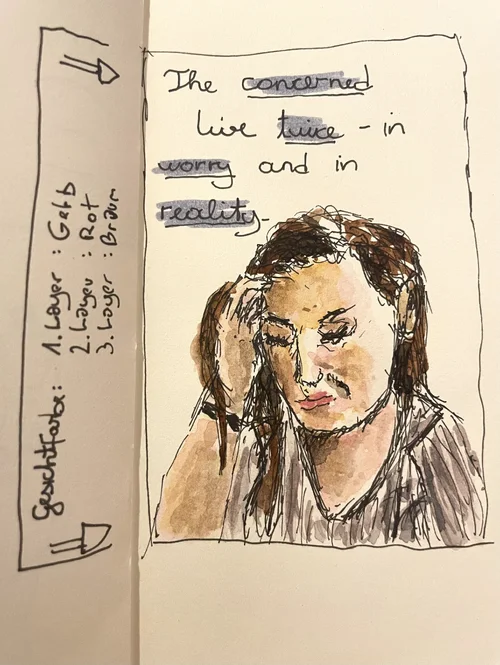 The concerned
live twice - in
worry and in
reality.
Gesichtfarbe: 1. Layer : Gelb
2. Layer : Rot
3. Layer : Braun